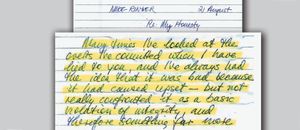 21 August
Re: My Honesty
Many times I've looked at the
overts I've committed when I have
lied to you, and I've always had
the idea that it was bad because
it had caused upset — but not
really confronted it as a basic
violation of integrity and
therefore something far more